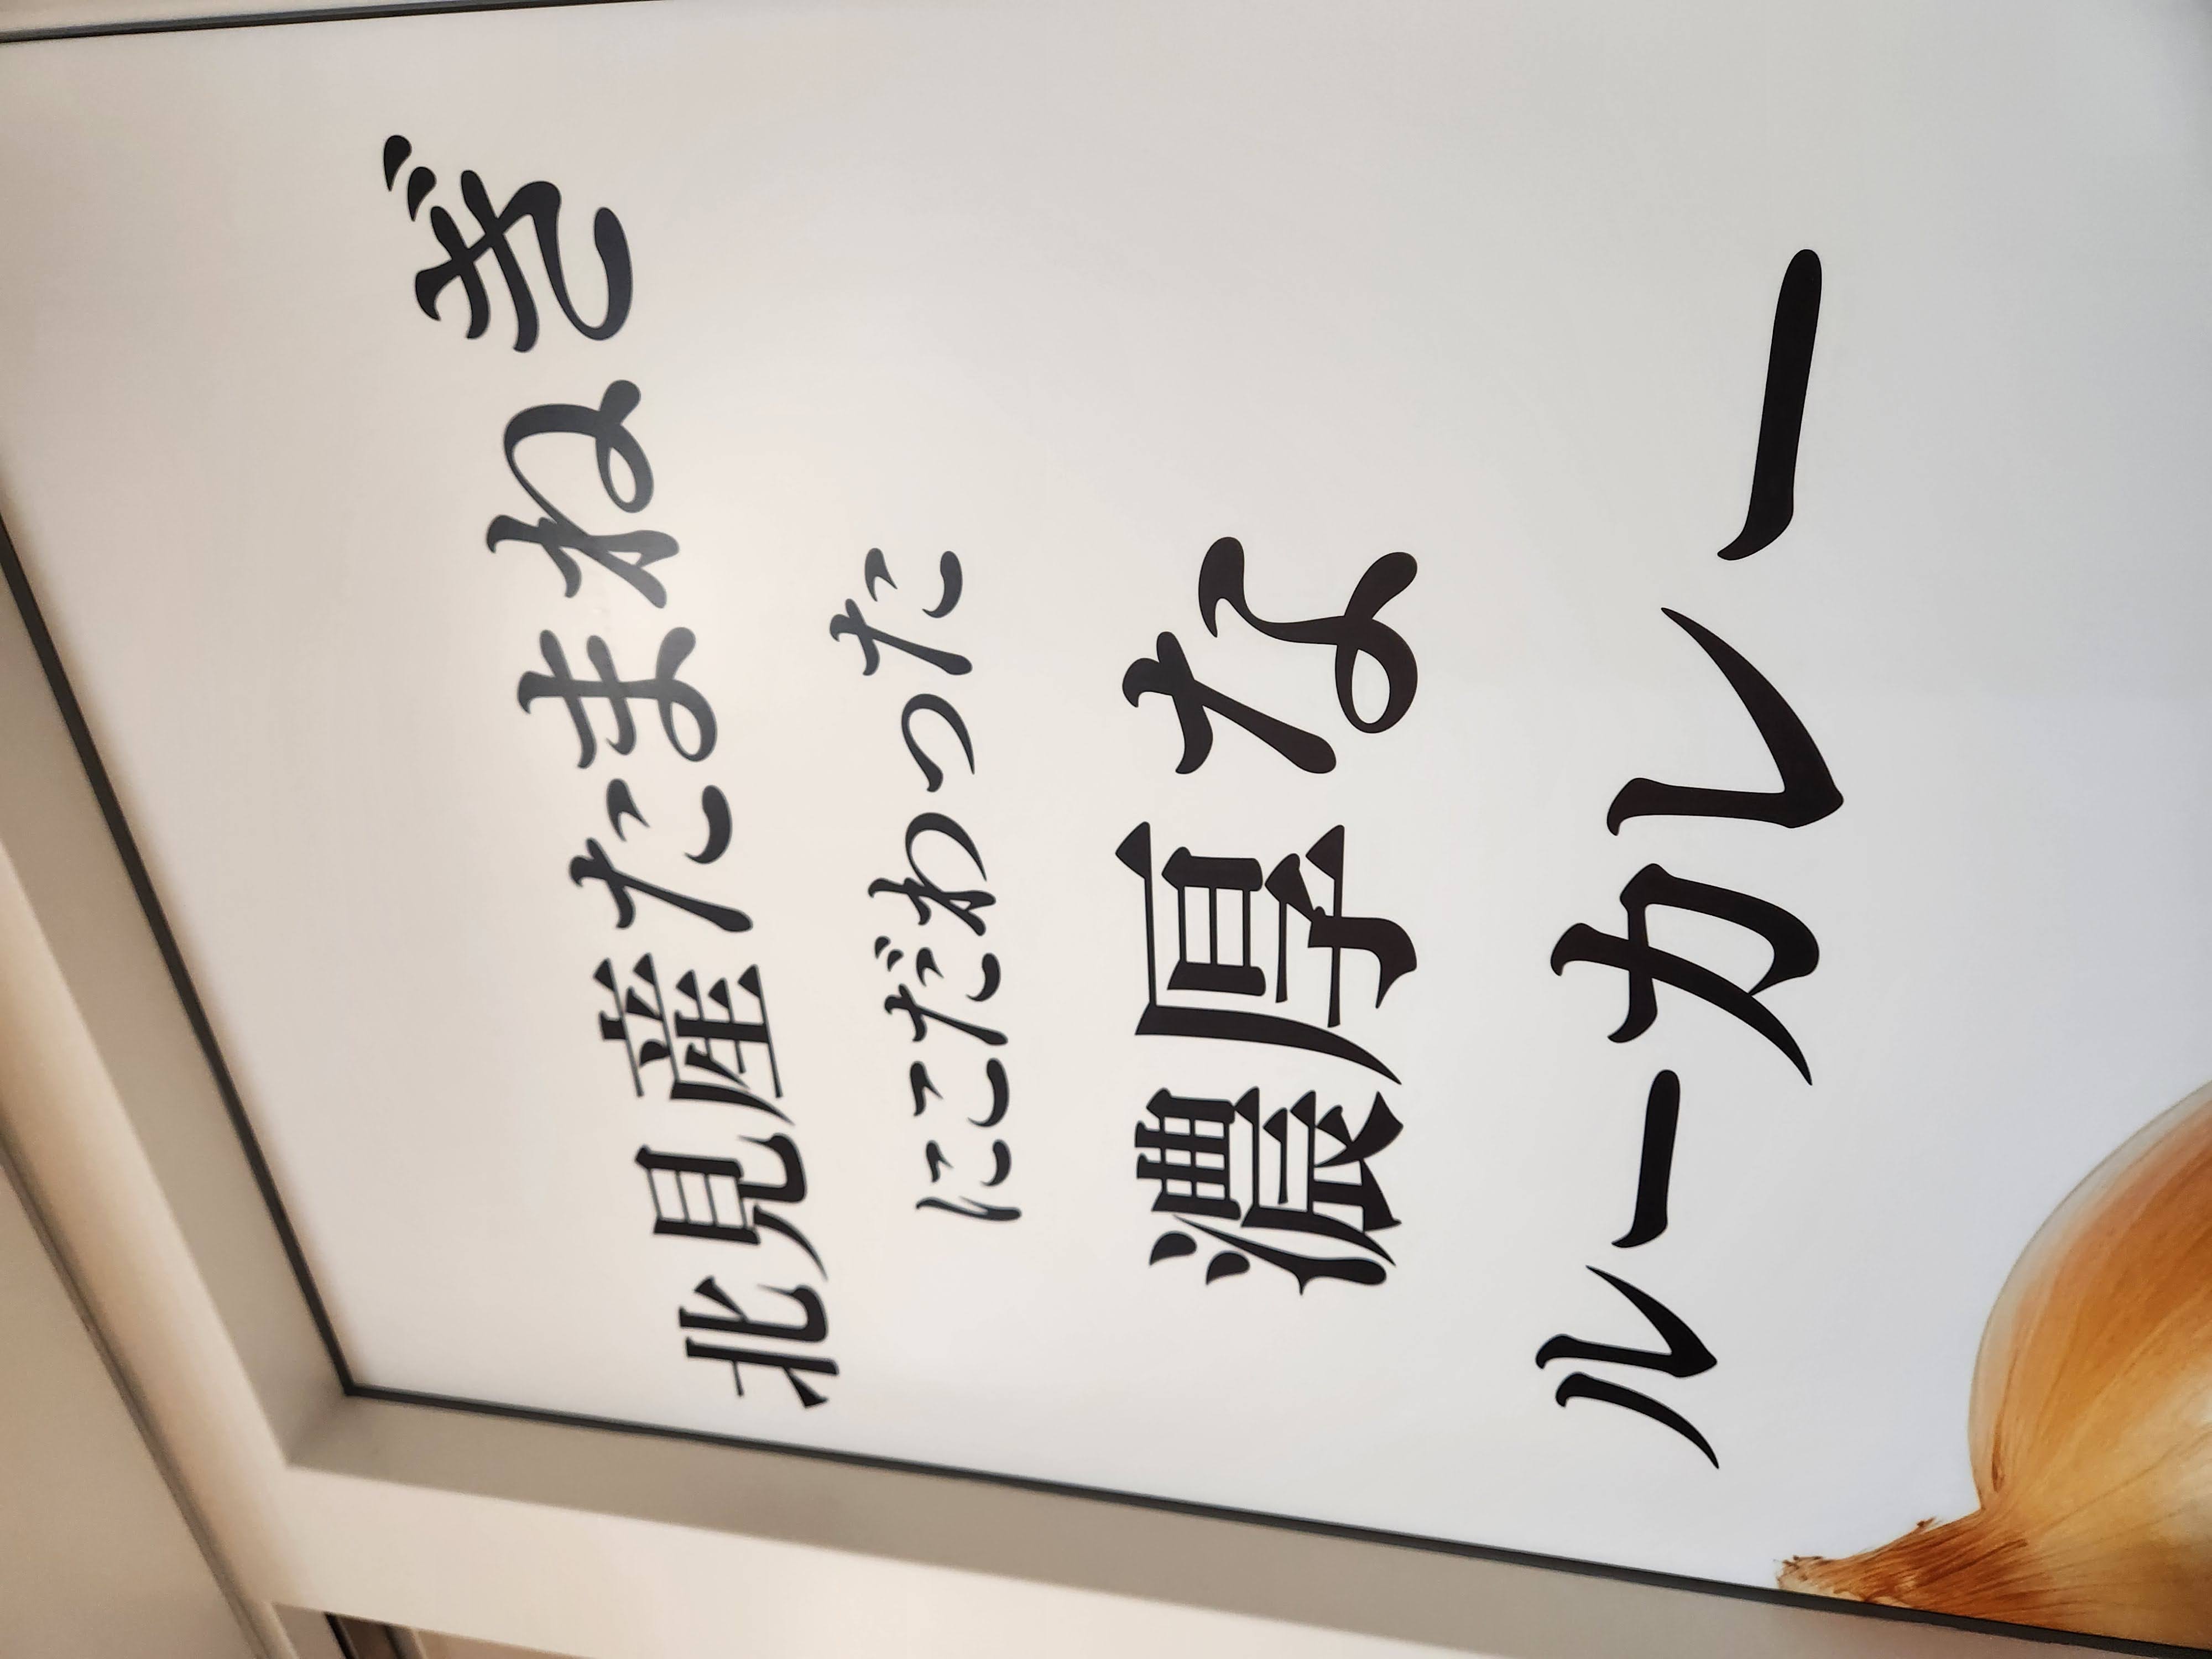 北見産たまねぎ
にこだわった
濃厚な
ルーカレー